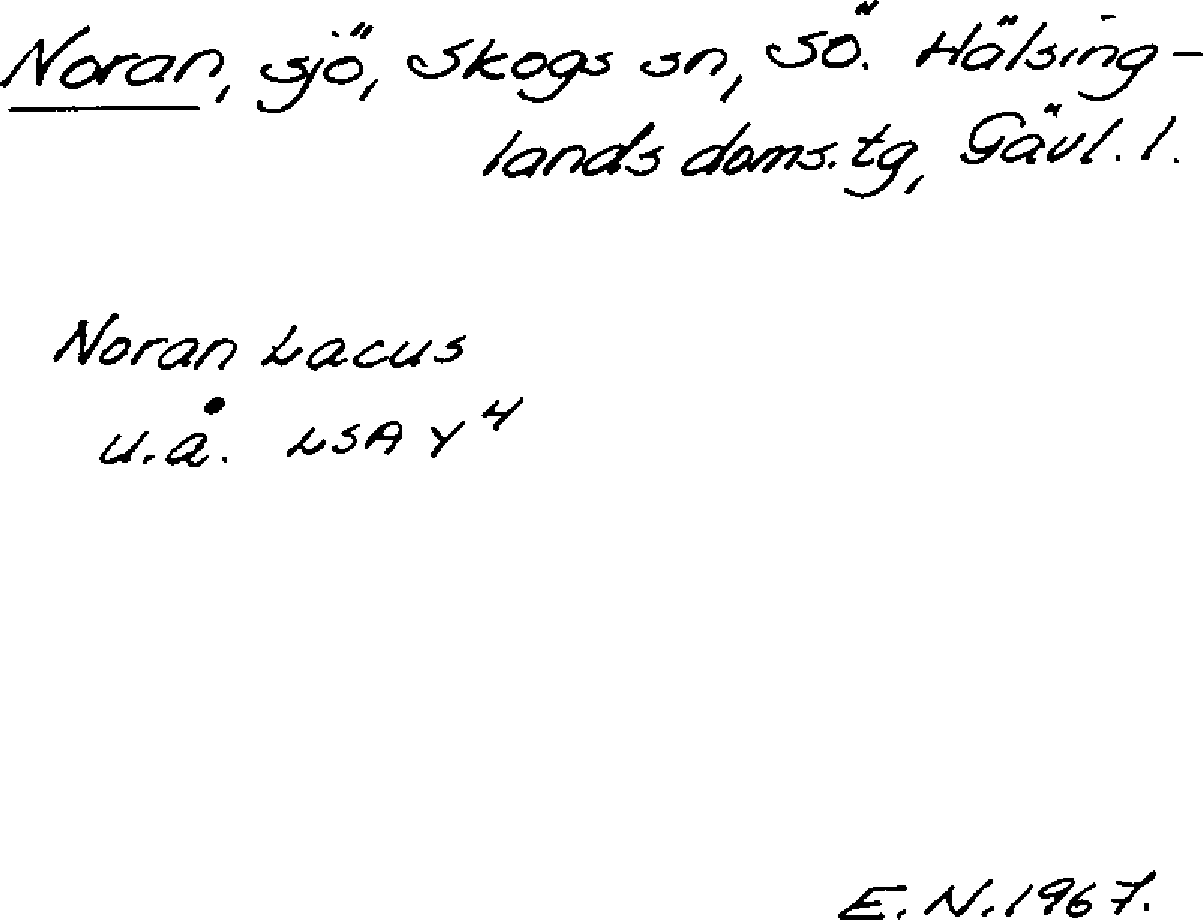 Noran, sjö, Skogs sn, Sö. Hälsing-
lands doms.tg, Gävl. l.
Noran Lacus
u.å. LSA Y4
E. N. 1967.